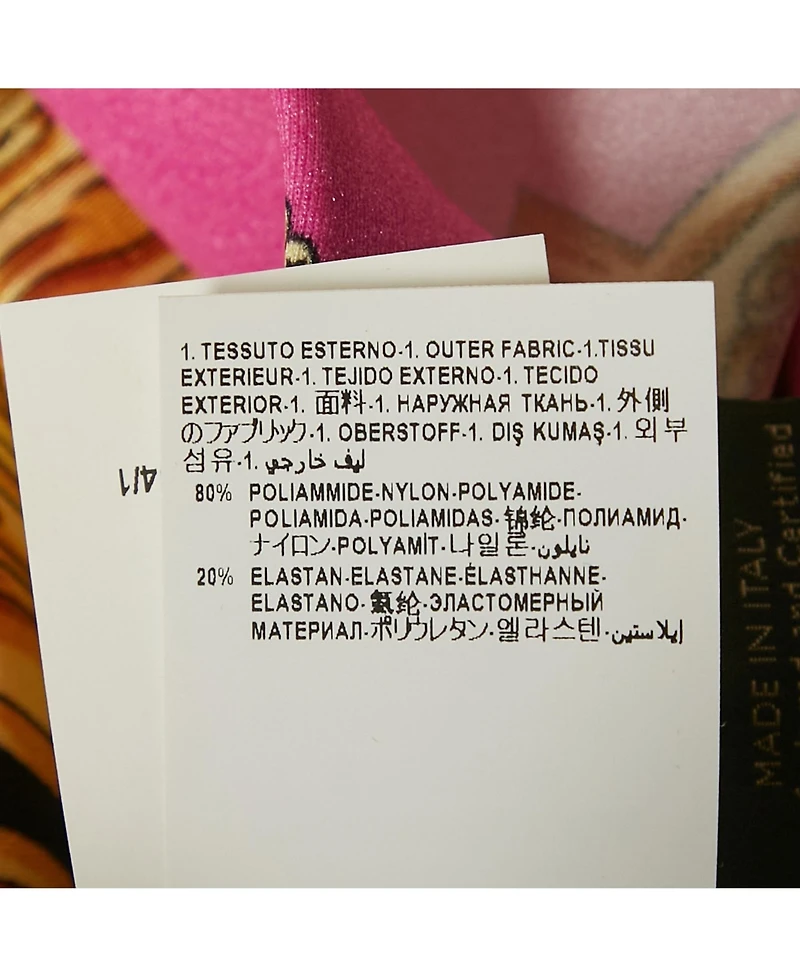 1. TESSUTO ESTERNO-1. OUTER FABRIC-1.TISSU
EXTERIEUR-1. TEJIDO EXTERNO-1. TECIDO
EXTERIOR-1. 面料-1. НАРУЖНАЯ ТКАНЬ-1. 外側
のファブリック-1. OBERSTOFF-1. DIŞ KUMAŞ-1. 외부
섬유-1. ليف خارجي
80% POLIAMMIDE-NYLON-POLYAMIDE-
POLIAMIDA-POLIAMIDAS-锦纶-ПОЛИАМИД-
ナイロン-POLYAMİT-나일론-نايلون
20% ELASTAN-ELASTANE-ÉLASTHANNE-
ELASTANO-氨纶-ЭЛАСТОМЕРНЫЙ
МАТЕРИАЛ-ポリウレタン-엘라스텐-إيلاستين
4/1
MADE IN ITALY
and Certified